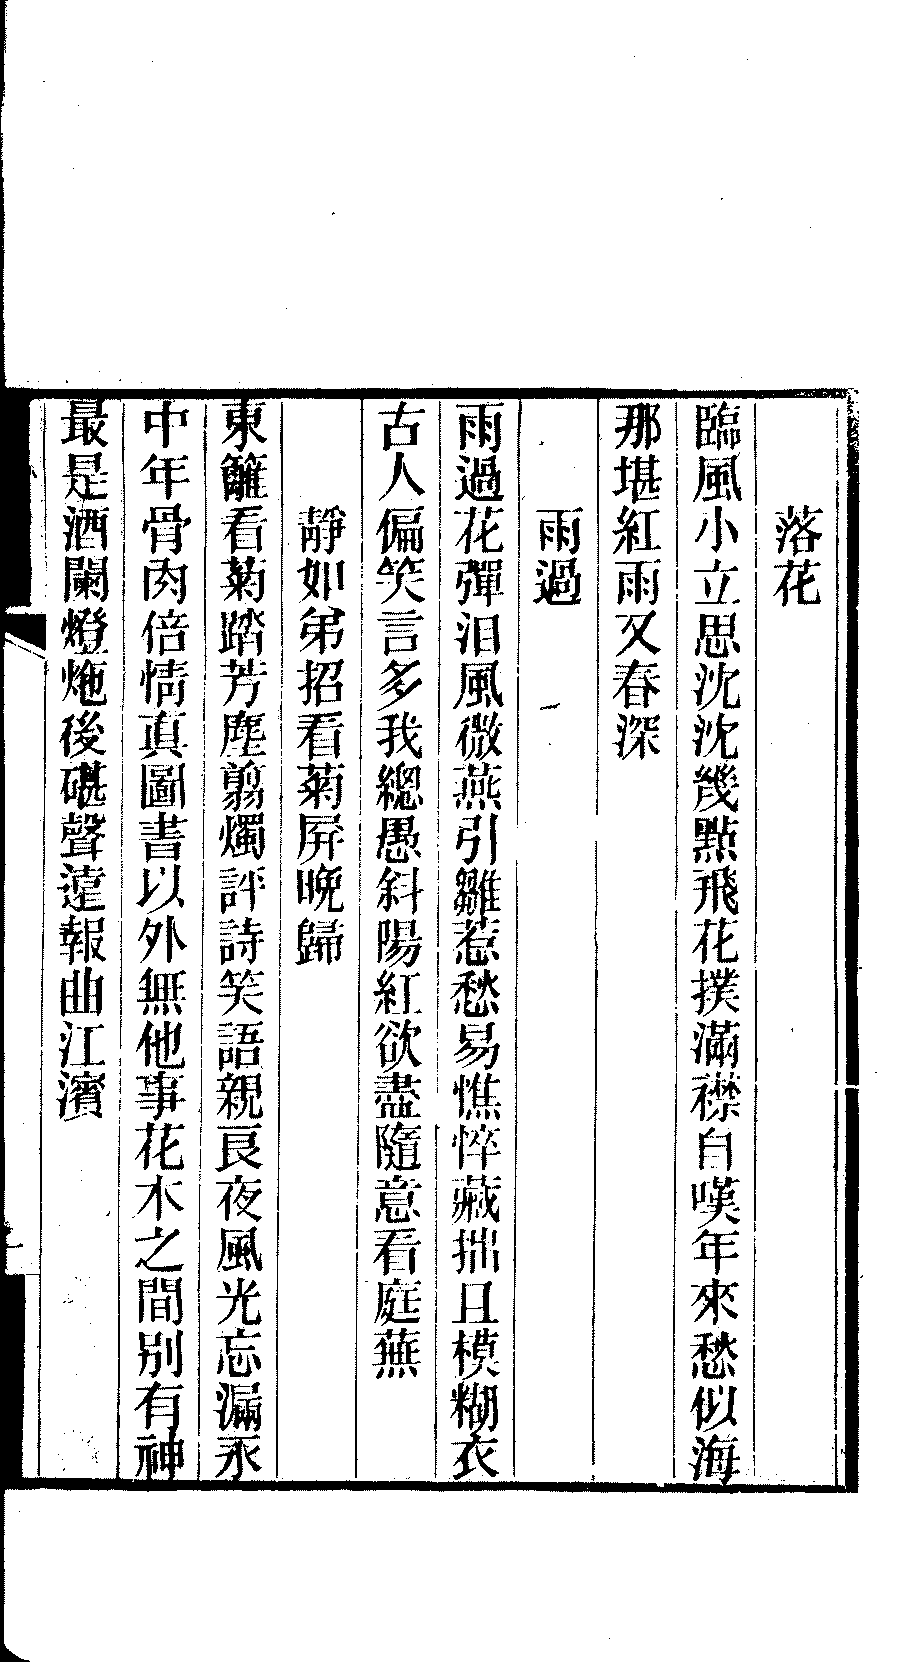 落花
臨風小立思沈沈幾點飛花撲滿襟自嘆年來愁似海
那堪紅雨又春深
雨過
雨過花彈泪風微燕引雛惹愁易憔悴藏拙且模糊衣
古人偏笑言多我總愚斜陽紅欲盡隨意看庭蕪
靜如弟招看菊屛晚歸
東籬看菊踏芳塵翦燭評詩笑語親良夜風光忘漏永
中年骨肉倍情真圖書以外無他事花木之間別有神
最是酒闌燈灺後碪聲遠報曲江濱